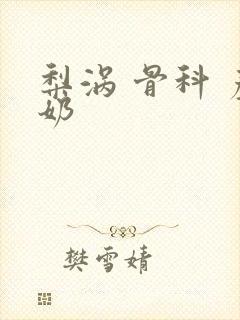 梨涡 骨科
奶
樊雪婧